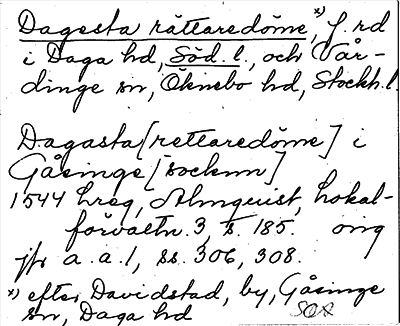 Dagesta rättaredöme,ˣ⁾ f. rd
i Daga hd, Söd. l., och Vår-
dinge sn, Öknebo hd, Stockh. l.
Dagasta [rettaredöme] i
Gåsinge [socknn]
1544 hreg, Almquist, Lokal-
förvaltn. 3, s. 185. orig
jfr a. a. 1, ss. 306, 308.
ˣ⁾ efter Davidstad, by, Gåsinge
sn, Daga hd